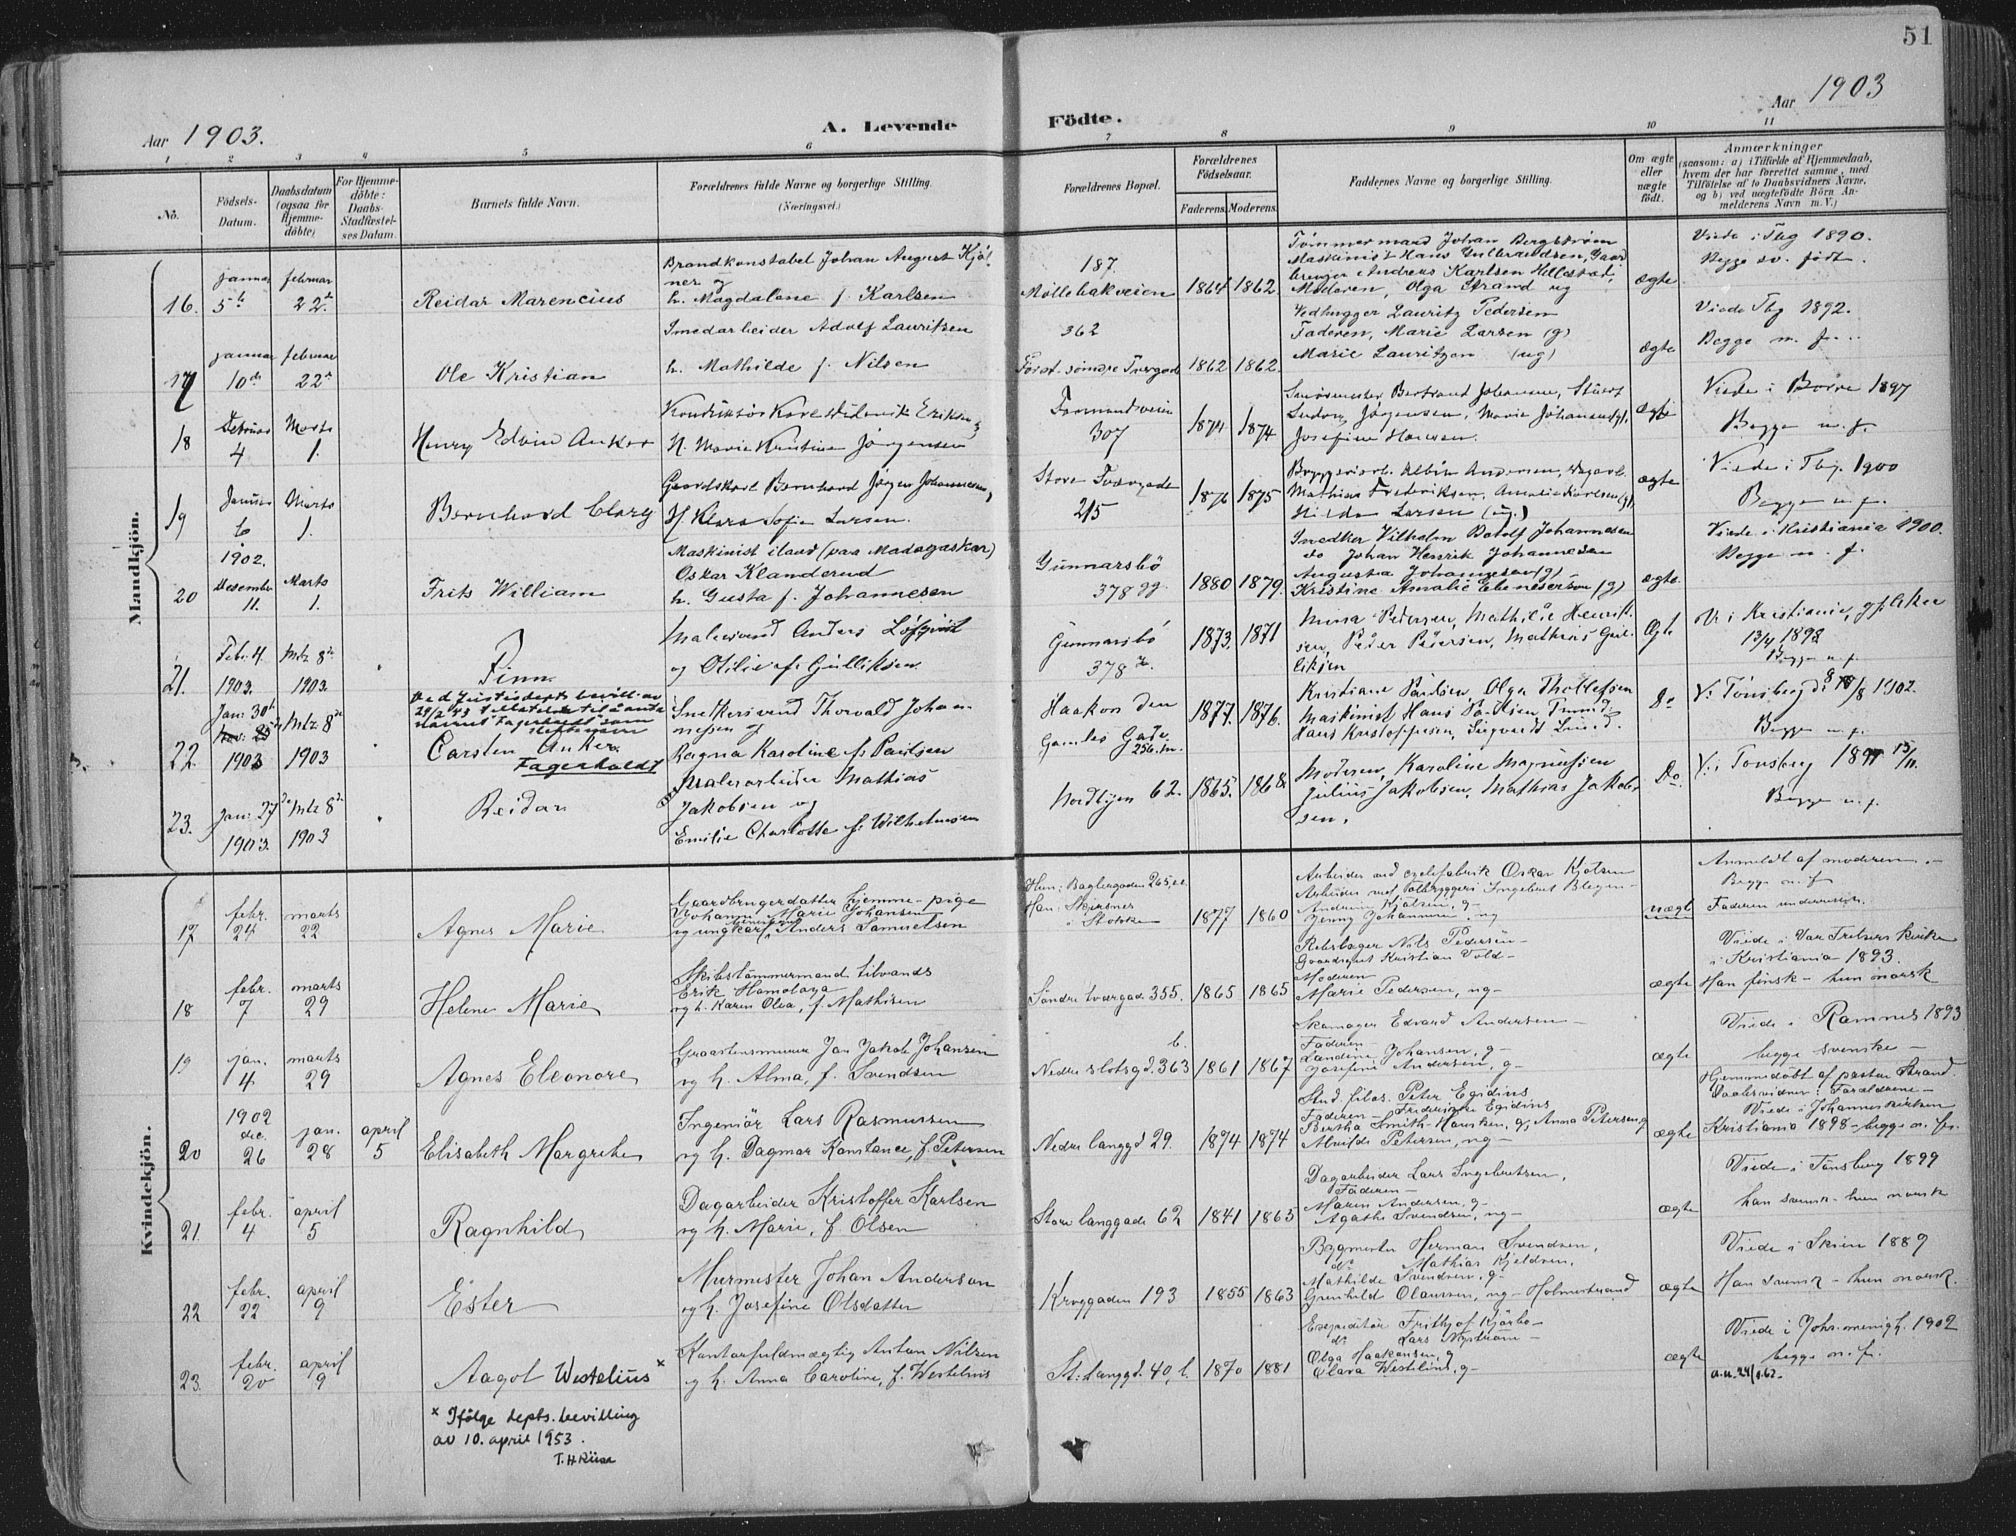 51
Aar 1903.
A. Levende Födte.
Aar 1903
1 2 3 4 5 6 7 8 9 10 11
No.
Födsels-Datum.
Daabsdatum (ogsaa for Hjemme-döbte)
For Hjemme-döbte: Daabs-Stadfæstel-ses Datum.
Barnets fulde Navn.
Forældrenes fulde Navne og borgerlige Stilling.
(Næringsvei.)
Forældrenes Bopæl.
Forældrenes Födselsaar.
Faderens. Moderens.
Faddernes Navne og borgerlige Stilling.
Om ægte eller uægte födt.
Anmærkninger
(saasom: a) i Tilfælde af Hjemmedaab, hvem der har forrettet samme, med Tilföielse af to Daabsvidners Navne, og b) ved uægtefödte Börn An-melderens Navn m. V.)
Mandkjön.
16. januar 5te februar 22de
Reidar Marencius
Brandkonstabel Johan August Kjöl
ner og
h. Magdalene f. Karlsen
187
Møllebakveien 1864 1862
Tømmermand Johan Bergstrøm
Maskinist Hans Gulbrandsen, Gaard
bruger Andreas Karlsen Hillestad,
Moderen, Olga Strand ug
ægte
Viede i Tbg 1890.
Begge sv. født.
17 januar 10de februar 22de
Ole Kristian
Smedarbeider Adolf Lauritzen
h. Mathilde f. Nilsen
362
Forst. søndre Tvergade 1862 1862.
Vedhugger Lauritz Pedersen
Faderen, Marie Larsen (g)
Marie Lauritzen (ug)
ægte
Viede Tbg 1892.
Begge n. f.
18 Februar 4 Marts 1.
Henry Edvin Anker
H. Marie Kristine Jørgensen
Farmandsveien
307
1874 1874
Ludvig Jørgensen, Marie Johansen (g),
Josefine Hansen.
ægte
Viede i Borre 1897
Begge n. f.
19 Januar 6 Marts 1.
Bernhard Clory
Gaardskarl Bernhard Jørgen Johannesen,
H. Klara Sofie Larsen.
Store Tvergade
215
1876 1875
Bryggeriarb. Albin Andersen,
Mathias Frederiksen, Amalie Karlsen (g),
Hilda Larsen (ug.)
ægte
Viede i Tbg. 1900
Begge n. f.
20 1902. Desember 11. Marts 1.
Frits William
Maskinist iland (paa Madagaskar)
Oskar Klanderud
h. Gusta f. Johannesen
Gunnarsbö
378 gg.
1880 1879.
Snedker Vilhelm Botolf Johannesen
do Johan Henrik Johannesen
Augusta Johannesen (g)
Kristine Amalie Ebenesersen (g)
ægte
Viede i Kristiania 1900.
Begge n. f.
21. Feb. 4. 1903. Mtz 8de 1903.
Finn.
Malersvend Anders Löfqvist
og Otilie f. Gulliksen.
Gunnarsbö
378 z.
1873. 1871
Mina Pedersen, Mathilde Henrik-
sen, Peder Pedersen, Mathias Gul-
liksen
Ægte
V. i Kristiania,
13/4 1898
Begge n. f.
22. Jan: 30te 1903 Mtz 8de 1903
Ved Justisdepts bevill. av
29/2 43 tillatelse til å anta
navnet "Fagerholdt" som
slektsnavn
Carsten Anker
Fagerholdt
Snekkersvend Thorvald Johan-
nessen og
Ragna Karoline f. Paulsen
Haakon den
Gamles Gade
256.m.
1877. 1876.
Kristiane Paulsen, Olga Thollefsen
Maskinist Hans Paulsen,
Hans Kristoffersen, Sigvard Lund.
Do
V. i Tönsberg 1902.
Begge n. f.
23. Jan: 27de 1903. Mtz 8de 1903
Reidar
Malerarbeider Mathias
Jakobsen og
Emilie Charlotte f. Wilhelmsen
Nordbyen 62. 1865. 1868
Moderen, Karoline Magnussen
Julius Jakobsen, Mathias Jakob-
sen.
Do.
V. i Tonsberg 1891 15/11.
Begge n. f.
Kvindekjön.
17 febr. 24 marts 22
Agnes Marie
Gaardbrugerdatter hjemme - pige
Johanne Marie Johansen
og ungkarl Anders Samuelsen
Hun: Baglergaden 265
Han: Skirsner
i Stokke
1877 1860
Arbeider ved cyclefabrik Oskar Kjölsen
Arbeider ved Tolbryggeri Ingebret Blegen-
Andrine Kjölsen, g-
Jenny Johannsen, ug
uægte
Anmeldt af moderen.-
Begge n. f
Faderen underrettet.
18 febr. 7 marts 29
Helene Marie
Skibstömmermand tilvands
Erik Hamolaya
og h. Karen Olea, f. Mathisen
Söndre tvergade 355. 1865 1865
Rebslager Nils Pedersen-
Gaardsgut Kristian Vold-
Moderen
Marie Pedersen, ug-
ægte
Viede i Vor Frelsers kirke
i Kristiania 1893.
Han finsk - hun norsk
19 jan. 4 marts 29
Agnes Eleonore
Graastensmurer Jan Jakob Johansen
og h. Alma, f. Svendsen
Nedre slotsgd. 363 b. 1861 1867
Skomager Edvard Andersen-
Faderen-
Landine Johansen, g-
Josefine Andersen, g-
ægte
Viede i Ramnes 1893
begge svenske-
20 1902 dec. 26 jan. 28 april 5
Elisabeth Margrethe
Ingeniör Lars Rasmussen
og h. Dagmar Konstance, f. Petersen
Nedre langgd. 29. 1874 1874
Stud. filos. Peter Egidius
Faderen- Frederikke Egidius
Bertha Smith-Hansken, g, Anna Petersen g
Alvilde Petersen, ug-
ægte
Hjemmedöbt af pastor Strand.
Daabsvidner: Forældrene-
Viede i Johanneskirken
Kristiania 1898 - begge n. f.
21. febr. 4 april 5
Ragnhild
Dagarbeider Kristoffer Karlsen
og h. Marie, f. Olsen
Store langgade 62 1841 1865
Dagarbeider Lars Ingebretsen,
Faderen-
Maren Andersen, g-
Agathe Svendsen, ug-
ægte
Viede i Tönsberg 1899
han svensk - hun norsk
22 febr. 22 april 9
Ester
Murmester Johan Anderson
og h. Josefine Olsdatter
Kroggaden 193 1855 1863
Bygmester Herman Svendsen,
do Mathias Kjeldsen,
Mathilde Svendsen, g-
Grenhild Olaussen, ug- Holmestrand
ægte
Viede i Skien 1889
Han svensk - hun norsk.
23. febr. 20 april 9
Aagot Westelius x
Kontorfuldmægtig Anton Nilsen
og h. Anna Caroline, f. Westelius
St. langgd. 40, b. 1870 1881
Expeditör Frithjof Kjörbo-
do Lars Nyström-
Olga Haakonsen, g
Clara Westelius, g-
ægte
Viede i Johs. menigh. 1902
begge n. f.
x Ifølge depts. bevilling
av 10. april 1953.
T. H. Riise